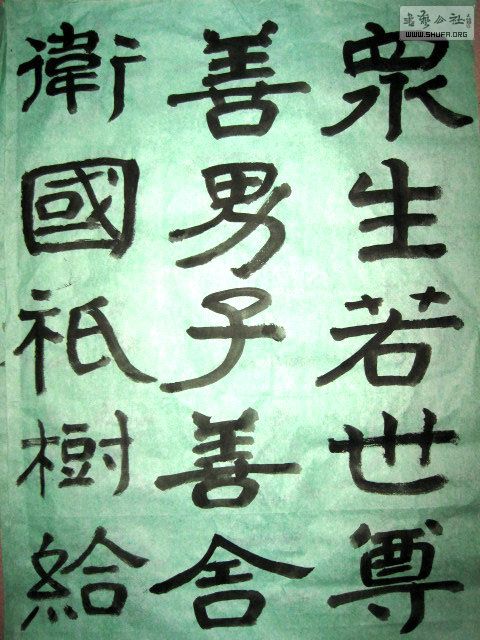 眾生若世尊
善男子善舍
衛國祇樹給
書藝公社
WWW.SHUFA.ORG